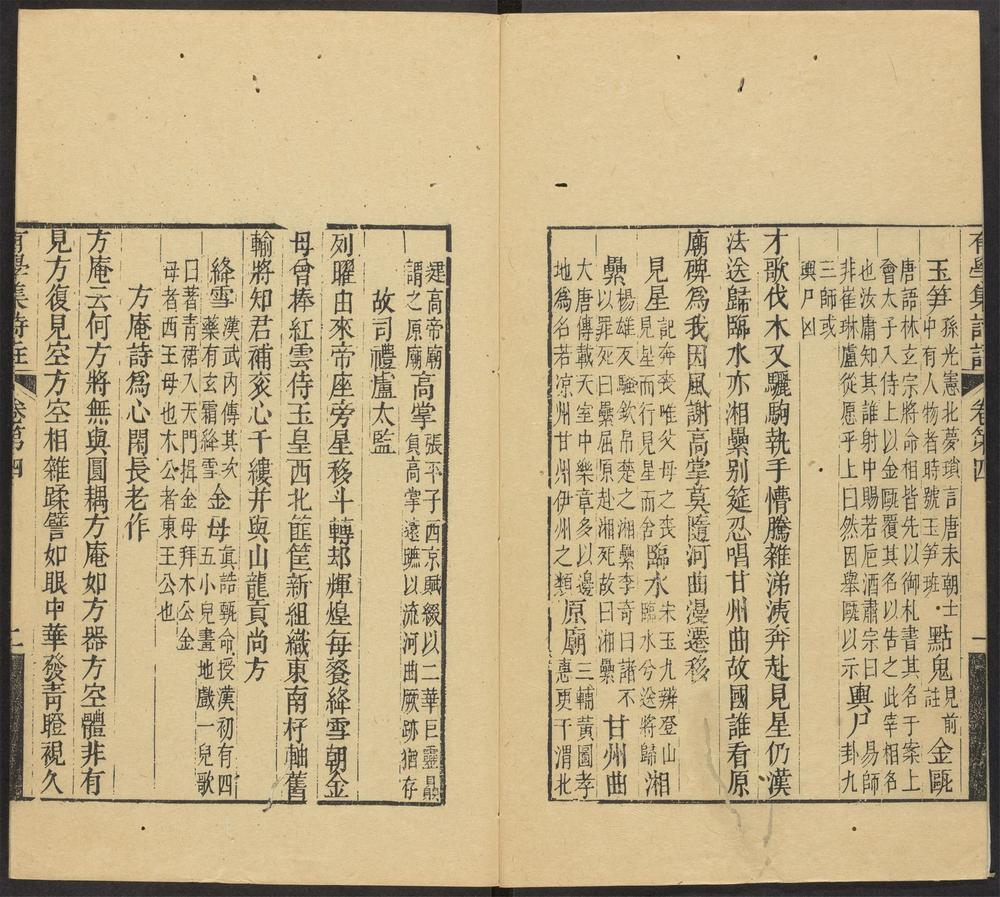 有學集詩註　卷第四　一
玉笋孫光憲北夢瑣言唐末朝士中有人物者時號玉笋班點鬼見前註金甌
唐語林玄宗將命相皆先以御札書其名于案上
會太子入侍上以金甌覆其名以告之此宰相名
也汝庸知其誰射中賜若巵酒肅宗曰非崔琳盧從愿乎上曰然因舉甌以示輿尸易師卦九
三師或
輿尸凶
才歌伐木又驪駒執手懵騰雜涕洟奔赴見星仍漢
法送歸臨水亦湘纍别筵忍唱甘州曲故國誰看原
廟碑為我因風謝高掌莫隨河曲漫遷移
見星記奔喪唯父母之喪見星而行見星而舍臨水宋玉九辨登山臨水兮送將歸湘
纍楊雄反騷欽弔楚之湘纍李奇曰諸不以罪死曰纍屈原赴湘死故曰湘纍甘州曲
大唐傳載天寶中樂章多以邊地為名若凉州甘州伊州之類原廟三輔黃圖孝惠更于渭北
建高帝廟謂之原廟高掌張平子西京賦綴以二華巨靈贔屓高掌遠蹠以流河曲厥跡猶存
故司禮盧太監
列曜由來帝座旁星移斗轉却輝煌每餐絳雪朝金
母曾捧紅雲侍玉皇西北篚筐新組織東南杼軸舊
輸將知君補衮心千縷并與山龍貢尚方
絳雪漢武内傳其次藥有玄霜絳雪金母真誥甄命授漢初有四五小兒畫地戲一兒歌
曰著青裙入天門揖金母拜木公金
母者西王母也木公者東王公也
方庵詩為心閑長老作
方庵云何方將無與圓耦方庵如方器方空體非有
見方復見空方空相雜蹂譬如眼中華發青瞪視久
有學集詩註　卷第四　二